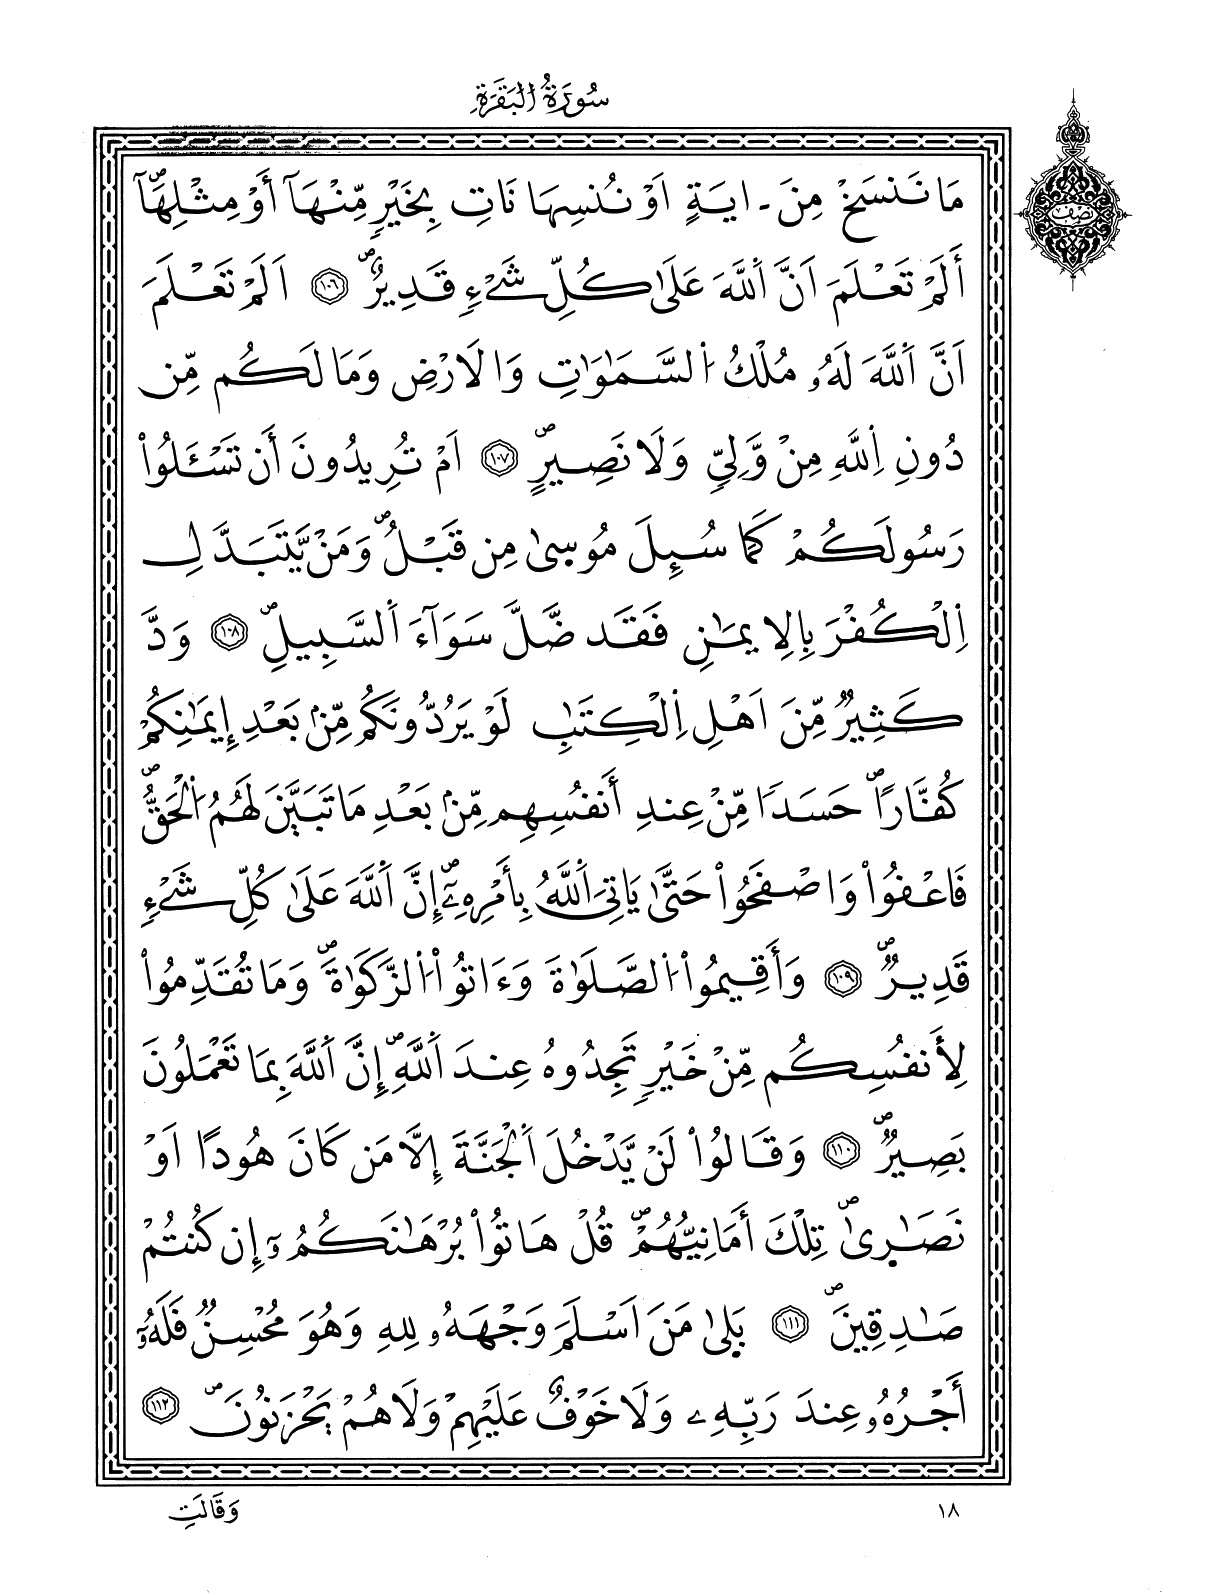 سُورَةُ الْبَقَرَةِ
نِصْف
مَا نَنسَخْ مِنَ ـ ايَةٍ اَوْ نُنسِهَا نَاتِ بِخَيْرٍ مِّنْهَآ أَوْ مِثْلِهَآۖ
أَلَمْ تَعْلَمَ اَنَّ اَللَّهَ عَلَىٰ كُلِّ شَےْءٖ قَدِيرٌۖ ١٠٦ اَلَمْ تَعْلَمَ
اَنَّ اَللَّهَ لَهُۥ مُلْكُ اُلسَّمَٰوَٰتِ وَالَارْضِ وَمَا لَكُم مِّن
دُونِ اِللَّهِ مِنْ وَّلِيّٖ وَلَا نَصِيرٍۖ ١٠٧ اَمْ تُرِيدُونَ أَن تَسْـَٔلُواْ
رَسُولَكُمْ كَمَا سُئِلَ مُوس۪ىٰ مِن قَبْلُۖ وَمَنْ يَّتَبَدَّلِ
اِلْكُفْرَ بِالِايمَٰنِ فَقَد ضَّلَّ سَوَآءَ اَلسَّبِيلِۖ ١٠٨ وَدَّ
كَثِيرٌ مِّنَ اَهْلِ اِلْكِتَٰبِ لَوْ يَرُدُّونَكُم مِّنۢ بَعْدِ إِيمَٰنِكُمْ
كُفَّاراًۖ حَسَداً مِّنْ عِندِ أَنفُسِهِم مِّنۢ بَعْدِ مَا تَبَيَّنَ لَهُمُ اُلْحَقُّۖ
فَاعْفُواْ وَاصْفَحُواْ حَتَّىٰ يَاتِيَ اَللَّهُ بِأَمْرِهِۦٓۖ إِنَّ اَللَّهَ عَلَىٰ كُلِّ شَےْءٖ
قَدِيرٌۖ ١٠٩ وَأَقِيمُواْ اُلصَّلَوٰةَ وَءَاتُواْ اُلزَّكَوٰةَۖ وَمَا تُقَدِّمُواْ
لِأَنفُسِكُم مِّنْ خَيْرٍ تَجِدُوهُ عِندَ اَللَّهِۖ إِنَّ اَللَّهَ بِمَا تَعْمَلُونَ
بَصِيرٌۖ ١١٠ وَقَالُواْ لَنْ يَّدْخُلَ اَلْجَنَّةَ إِلَّا مَن كَانَ هُوداً اَوْ
نَصَٰر۪ىٰۖ تِلْكَ أَمَانِيُّهُمْۖ قُلْ هَاتُواْ بُرْهَٰنَكُمُۥٓ إِن كُنتُمْ
صَٰدِقِينَۖ ١١١ بَل۪ىٰ مَنَ اَسْلَمَ وَجْهَهُۥ لِلهِ وَهُوَ مُحْسِنٌ فَلَهُۥٓ
أَجْرُهُۥ عِندَ رَبِّهِۦ وَلَا خَوْفٌ عَلَيْهِمْ وَلَا هُمْ يَحْزَنُونَۖ ١١٢
وَقَالَتِ
١٨